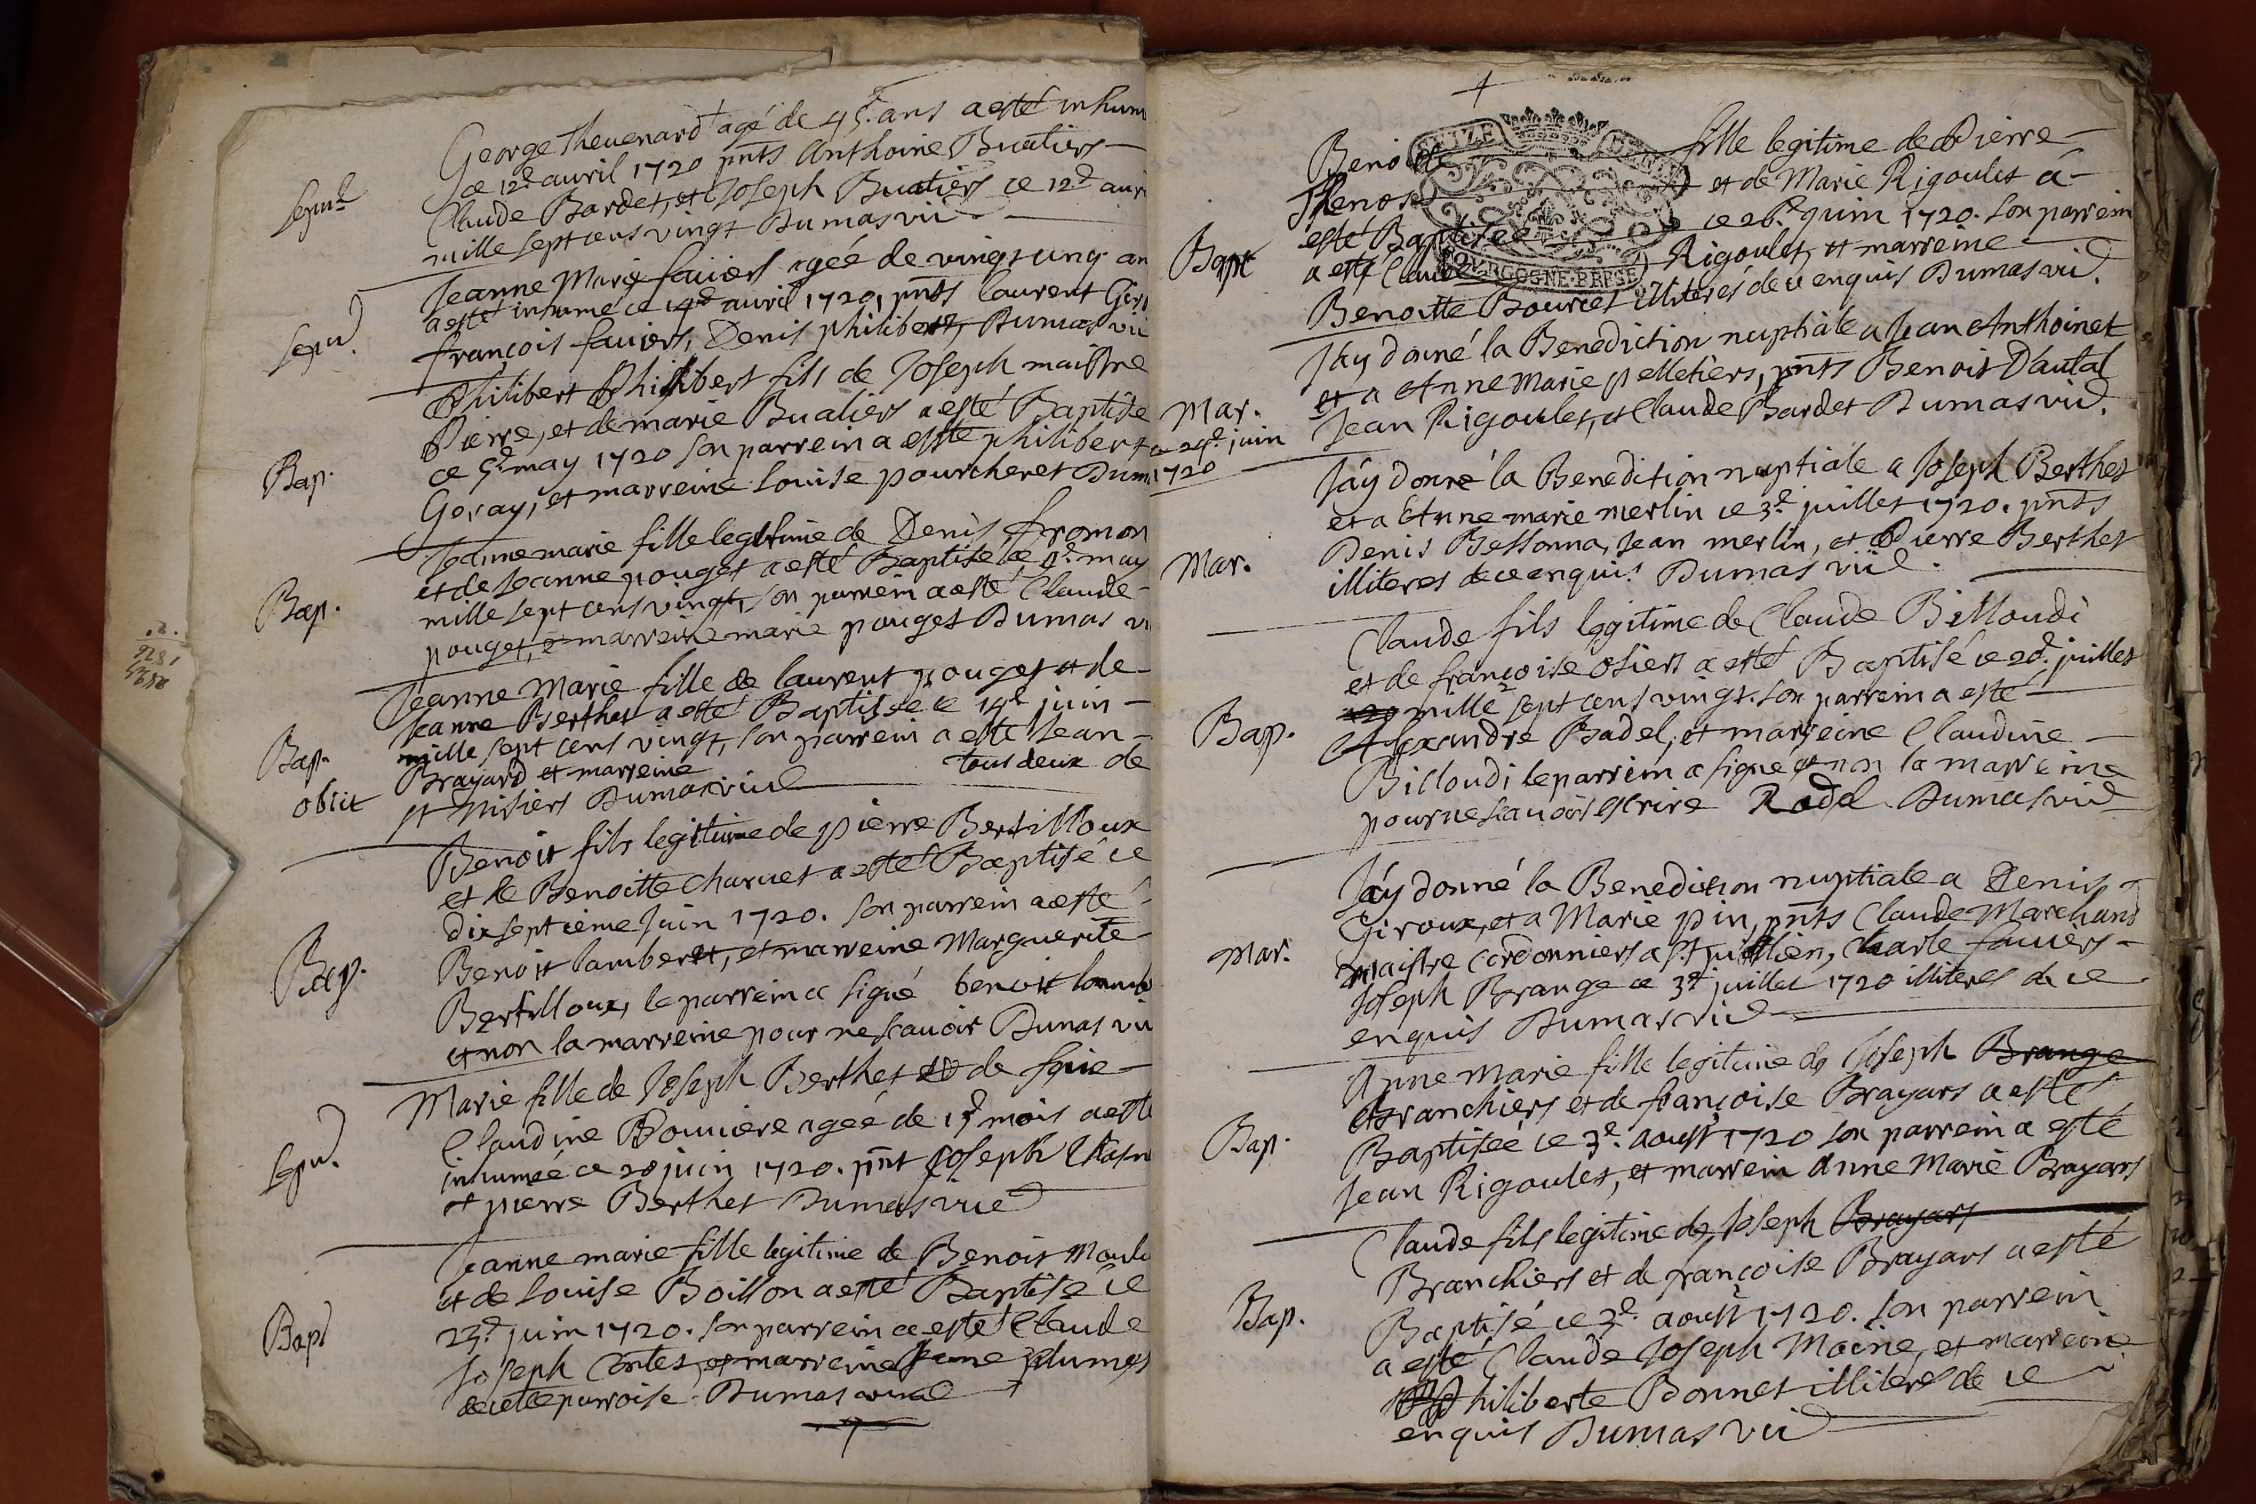 George Thevenard agé de 45 ans a esté inhum
ce 12e avril 1720 pnts Anthoine Buatiers
Sepue
Claude Bardet, et Joseph Buatiers ce 12e avri
mille sept cens vingt Dumas vic
Jeanne Marie faviers agée de vingt cinq an
a esté inhumé ce 14e avril 1720, pnts laurent Gir
Sepu.
françois faviers, Denis philibert, Dumas vic
Philibert Philibert fils de Joseph maistre
Pierre, et de marie Buatiers a esté Baptise
ce 5e may 1720 son parrein a esté philibert
Bap.
Goray, et marreine Louise pourcheret Dum
Jeanne marie fille legitime de Denis fromon
et de Jeanne pouget a esté Baptise ce may
Bap.
mille sept cens vingt, son parrein a esté Claude
pouget, e marreine marie pouget Dumas vi
Jeanne Marie fille de laurent pouget et de
Jeanne Berthet a esté Baptisée ce 14e juin
mille sept cens vingt, son parrein a esté Jean
Bap.
Brayard et marreine tous deux de
obiit
st Nisiers Dumas vic
Benoit fils legitime de pierre Bertilloux
et de Benoitte Charvet a esté Baptisé ce
dix septieme Juin 1720. son parrein a esté
Bap.
Benoit lambert, et marreine Marguerite
Bertilloux, le parrein a signé benoit lamb
et non la marreine pour ne scavoir Dumas vic
Marie fille de Joseph Berthet et de feüe
Claudine Bouviere agée de mois a esté
Sepu.
inhumée ce 20 juin 1720. pnt Joseph
et pierre Berthet Dumas vic
Jeanne marie fille legitime de Benoit Moul
et de Louise Boillon a esté Baptisé ce
Bap
23e juin 1720. son parrein a esté Claude
Joseph Contet, et marreine plumet
de cette parroise Dumas vic
Benoite fille legitime de Pierre
Thenos et de Marie Rigoulet a
esté Baptisée ce 26e juin 1720. son parrein
Bapt
a esté Claude Rigoulet, et marreine
Benoitte Bourcet illiterés de ce enquis Dumas vic
J'ay donné la Benediction nuptiale a Jean Anthoinet
et a Anne Marie pelletiers, pnts Benoit Dautal
Mar.
Jean Rigoulet, et Claude Bardet Dumas vic.
ce 29e juin
1720
J'ay donné la Benediction nuptiale a Joseph Berthet
et a Anne marie merlin ce 3e juillet 1720. pnts
Denis Bessonna, Jean merlin, et Pierre Berthet
Mar.
illiteres de ce enquis Dumas vic.
Claude fils legitime de Claude Billoudi
et de françoise osiers a esté Baptisé ce 20e. juillet
mille sept cens vingt. son parrein a esté
Bap.
Alexandre Badel, et marreine Claudine
Billoudi le parrein a signé et non la marreine
pour ne scavoir escrire Badel Dumas vic
J'ay donné la Benediction nuptiale a Denis
Giroux, et a Marie pin, pnts Claude Marchand
Mar.
maistre cordonniers a st jullien, Charle faviers
Joseph Brange ce 3e juillet 1720 illiteres de ce
enquis Dumas vic
Anne Marie fille legitime de Joseph Brange
Branchiers et de françoise Brayars a esté
Bap.
Baptisée ce 3e. aoust 1720 son parrein a esté
Jean Rigoulet, et marrein Anne Marie Brayars
Claude fils legitime de Joseph Brayars
Branchiers et de françoise Brayars a esté
Bap.
Baptisé ce 3e. aoust 1720. son parrein
a esté Claude Joseph Moine, et marreine
Philiberte Bonnet illiterés de ce
enquis Dumas vic